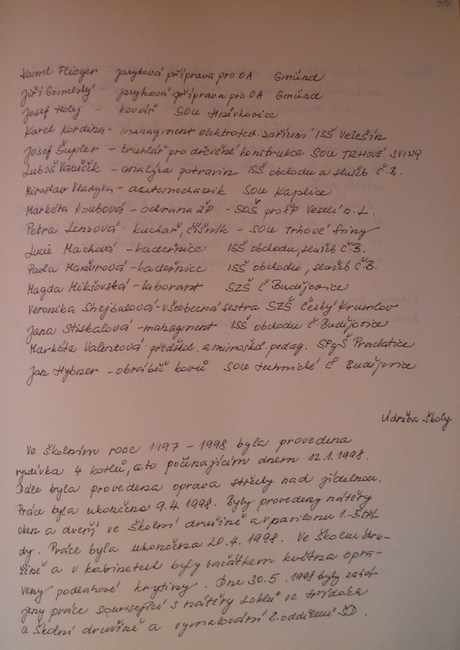 Kamil Flieger jazyková příprava pro OA Gmünd
Jiří - jazyková příprava pro OA Gmünd
Josef Holý - kovář SOU
Karel Kordina - managment elektrotech. zařízení ISŠ Velešín
Josef Šupler - truhlář pro dřevěné konstrukce SOU TRHOVÉ SVINY
Luboš - analýza potravin ISŠ obchodu a služeb Č.B.
Miroslav Vladyka - automechanik SOU Kaplice
Markéta Koubová - ochrana ŽP - SOŠ pro ŽP Veselí n. L.
Petra Lenzová - kuchař, číšník - SOU Trhové Sviny
Lucie Machová - kadeřnice ISŠ obchodu, služeb ČB.
Pavla - kadeřnice ISŠ obchodu, služeb ČB.
Magda - laborant SZŠ Č Budějovice
Veronika Shejbalová - všeobecná sestra SZŠ Český Krumlov
Jana Stiskalová - managment ISŠ obchodu Č Budějovice
Markéta Valentová předškol. a mimoškol. pedag. SPgŠ Prachatice
Jan Hybner - obráběč kovů SOU technické Č Budějovice
Údržba školy
Ve školním roce 1997 - 1998 byla provedena
4 kotlů, a to počínajícím dnem 12.1.1998.
Dále byla provedena oprava střechy nad jídelnou.
Práce byla ukončena 9.4.1998. Byly provedeny nátěry
oken a dveří ve školní družině a v pavilonu 1.-5. tří-
dy. Práce byla ukončena 20.4.1998. Ve školní dru-
žině a v kabinetech byly začátkem května opra-
veny podlahové krytiny. Dne 30.5.1998 byly zahá-
jeny práce související s nátěry soklů ve třídách
a školní družině a vymalování 2. oddělení ŠD.